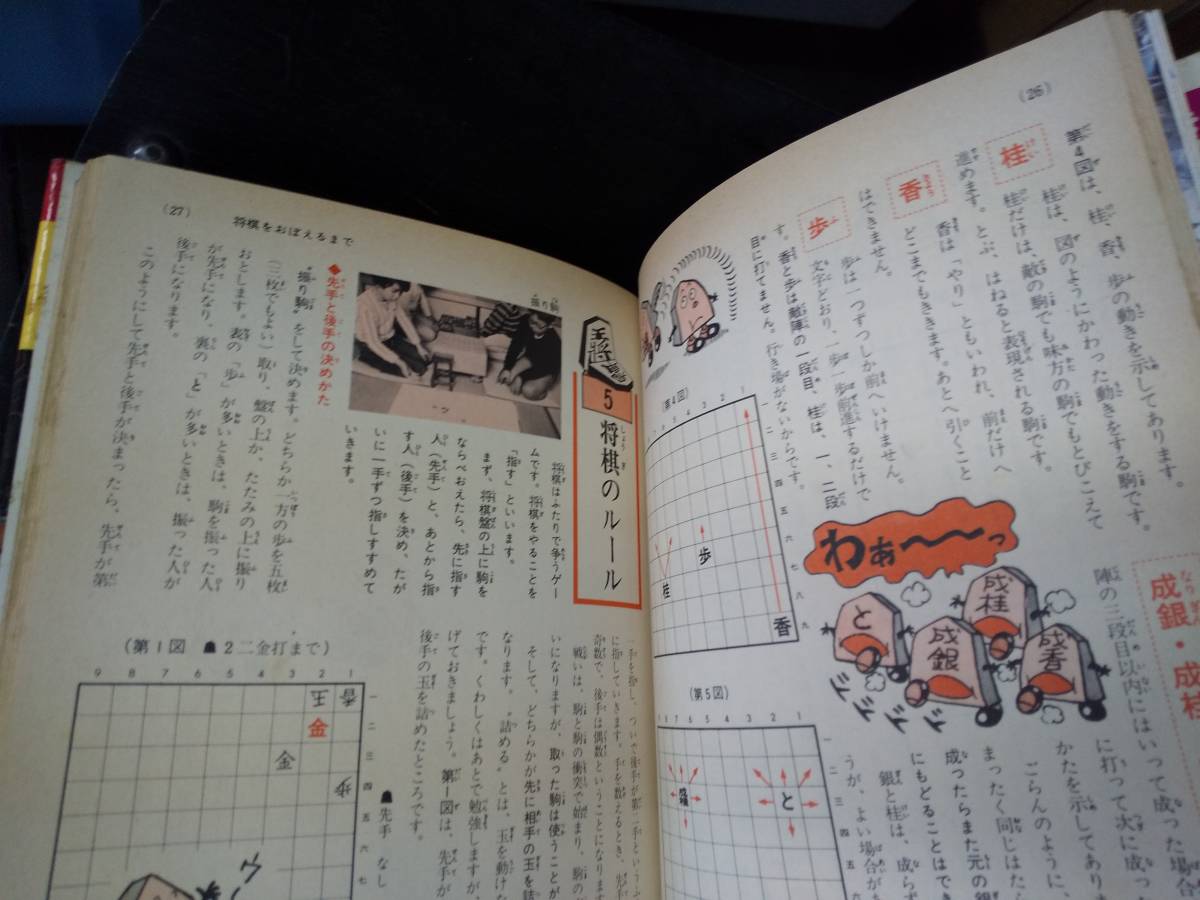 (26)
第4図は、桂、香、歩の動きを示してあります。
桂
桂は、図のようにかわった動きをする駒です。
桂だけは、敵の駒でも味方の駒でもとびこえて
進めます。とぶ、はねると表現される駒です。
香
香は「やり」ともいわれ、前だけへ
どこまでもききます。あとへ引くこと
はできません。
歩
歩は一つずつしか前へいけません。
文字どおり、一歩一歩前進するだけで
す。香と歩は敵陣の一段目、桂は、一、二段
目に打てません。行き場がないからです。
(第4図)
歩
桂
香
わあ〜〜っ
成桂
と
成銀
成香
成銀・成桂
陣の三段目以内にはいって成った場合
に打って次に成っ
かたを示してありま
ごらんのように、
まったく同じはたら
成ったらまた元の銀
にもどることはでき
銀と桂は、成らず
うが、よい場合が
(第5図)
と
(27)
将棋をおぼえるまで
王将
5 将棋のルール
振り駒
将棋はふたりで争うゲー
ムです。将棋をやることを
「指す」といいます。
まず、将棋盤の上に駒を
ならべおえたら、先に指す
人(先手)と、あとから指
す人(後手)を決め、たが
いに一手ずつ指しすすめて
いきます。
◆先手と後手の決めかた
“振り駒”をして決めます。どちらか一方の歩を五枚
(三枚でもよい)取り、盤の上か、たたみの上に振り
おとします。表の「歩」が多いときは、駒を振った人
が先手になり、裏の「と」が多いときは、振った人が
後手になります。
このようにして先手と後手が決まったら、先手が第
一手を指し、ついで後手が第二手というふ
に指していきます。手を数えるとき、先手
奇数で、後手は偶数ということになりま
戦いは、駒と駒の衝突で始まり、駒の
いになりますが、取った駒は使うことが
そして、どちらかが先に相手の玉を詰
なります。“詰める”とは、玉を動けな
です。くわしくはあとで勉強しますが、
げておきましょう。第1図は、先手が
後手の玉を詰めたところです。
(第1図 ☗2二金打まで)
9 8 7 6 5 4 3 2 1
玉
香
金
金
歩
☗先手 なし